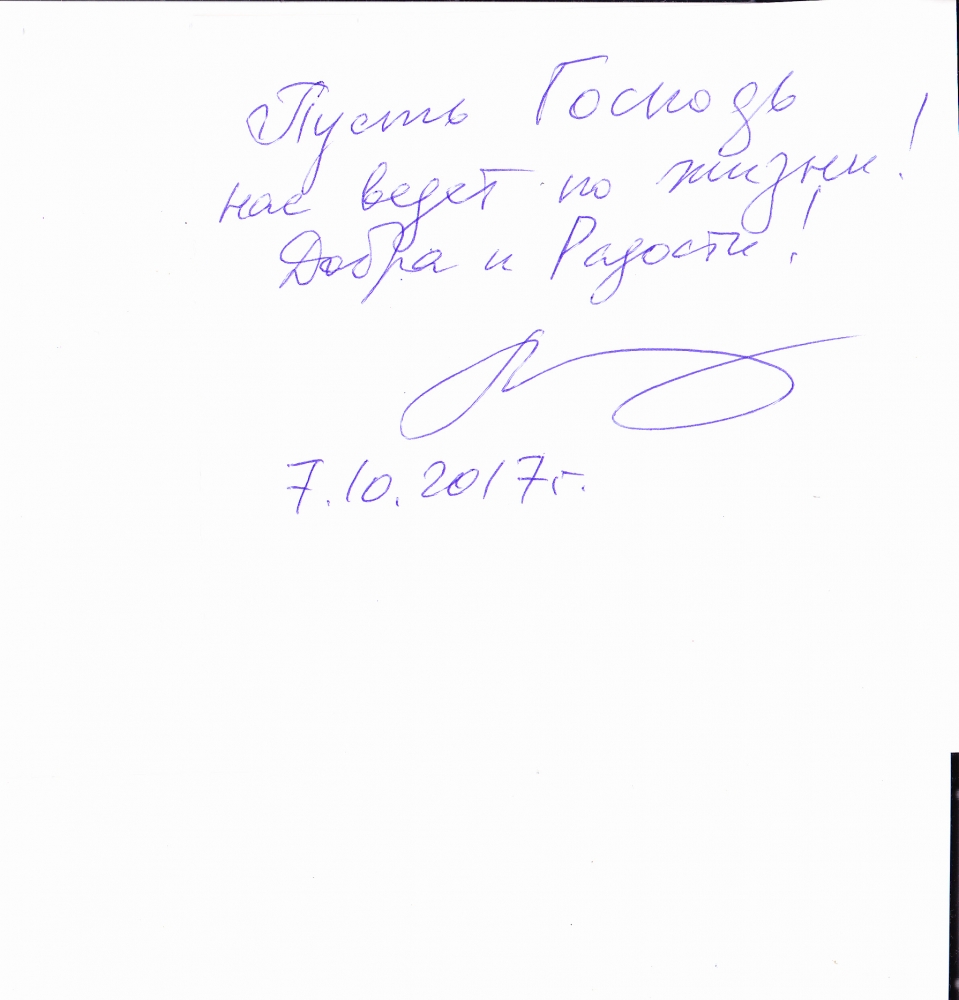 Пусть Господь
нас ведет по жизни!
Добра и Радости!
7.10.2017г.